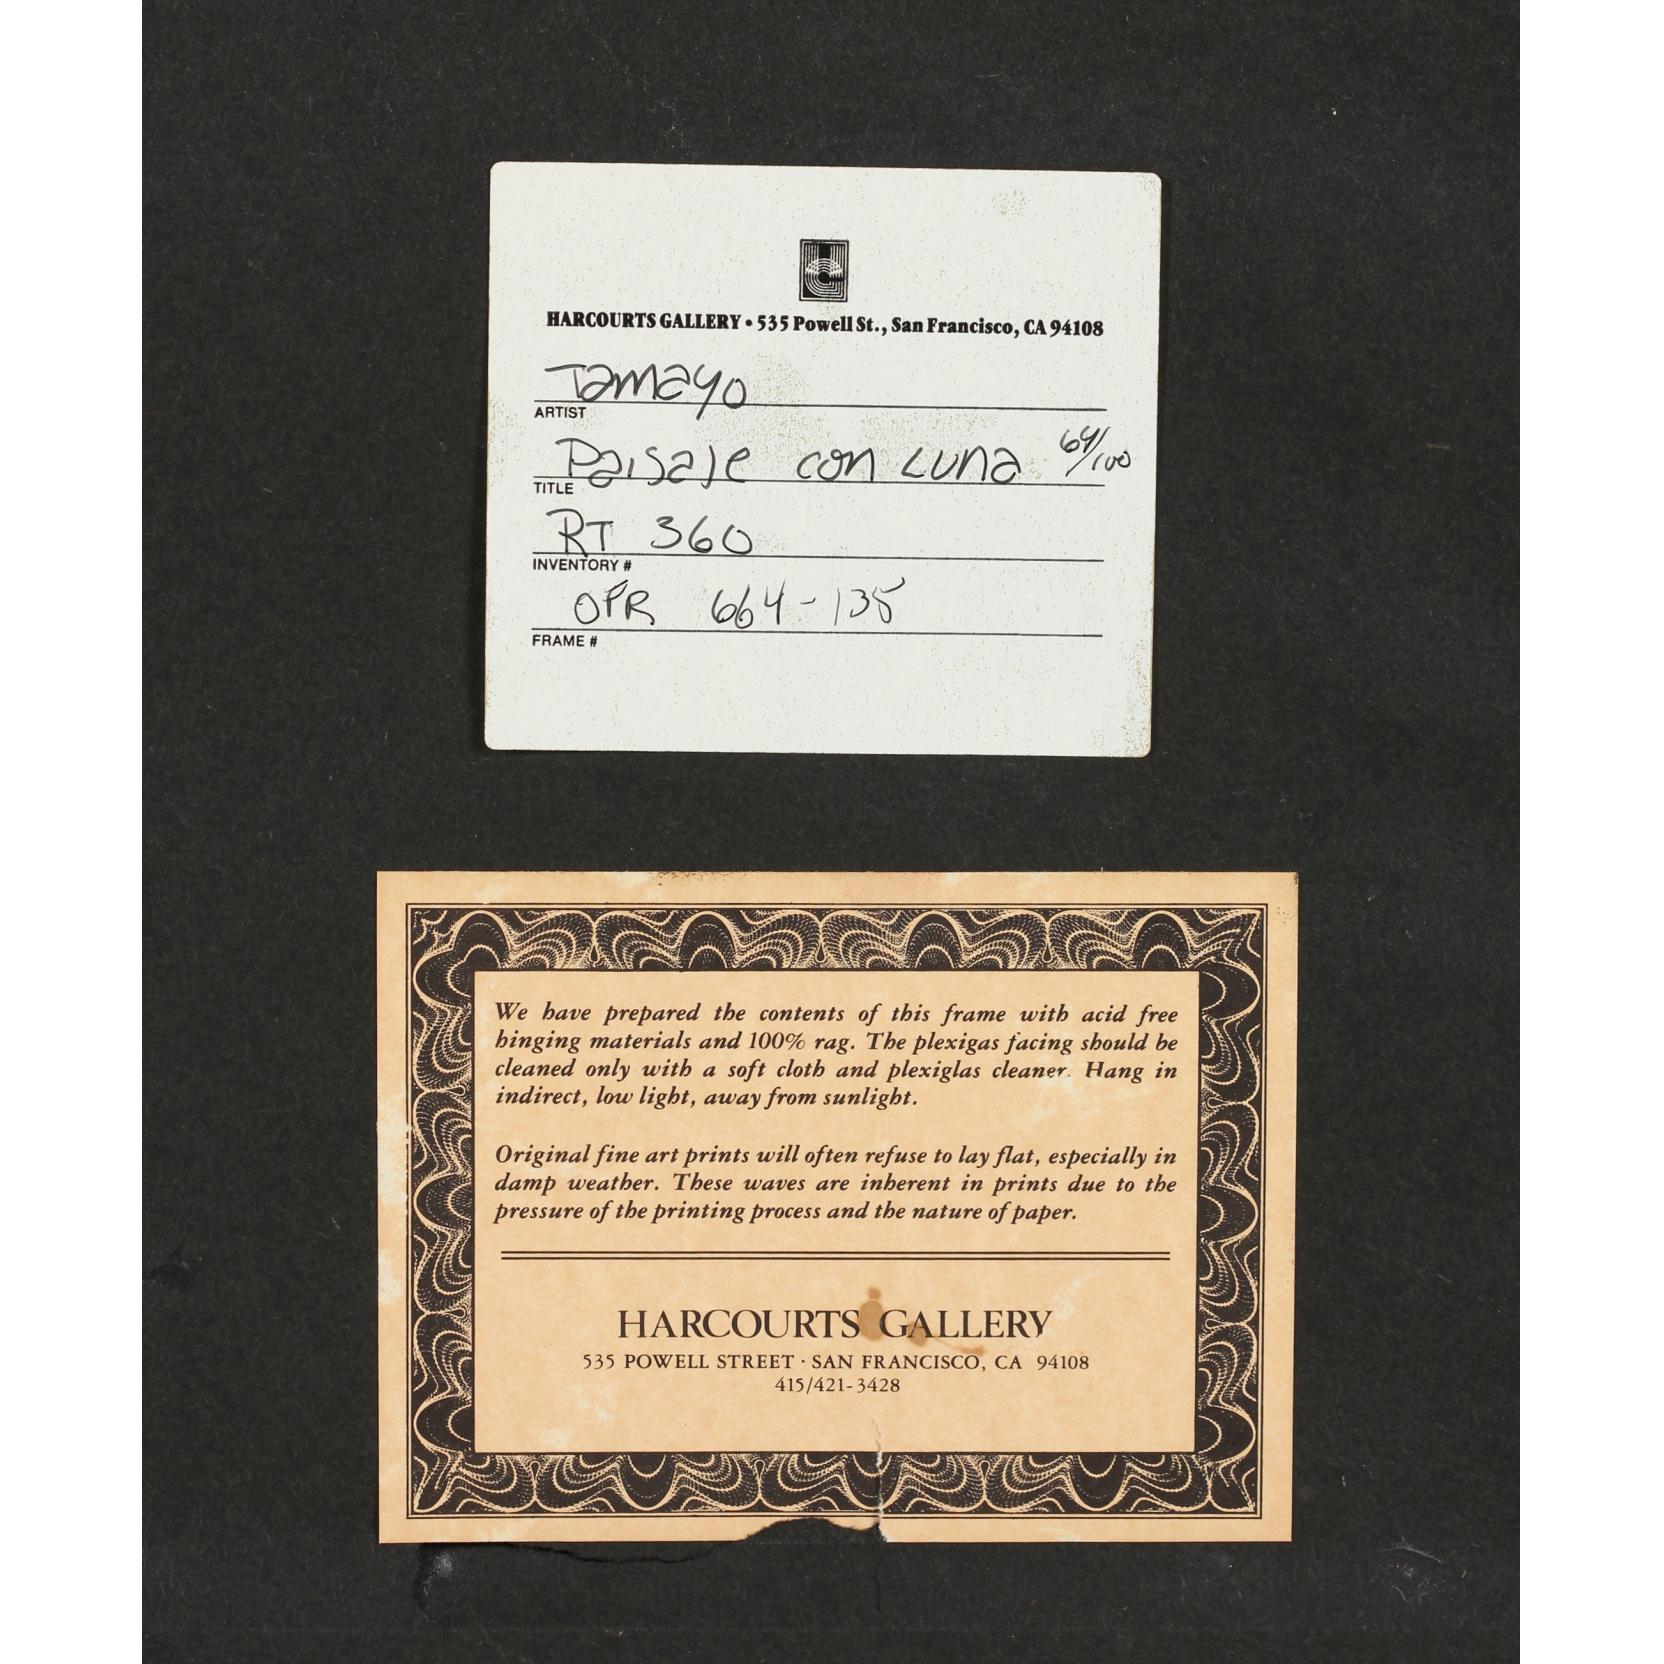 HARCOURTS GALLERY • 535 Powell St., San Francisco, CA 94108
Tamayo
ARTIST
Paisaje con Luna 64/100
TITLE
RT 360
INVENTORY #
OPR 664-135
FRAME #
We have prepared the contents of this frame with acid free
hinging materials and 100% rag. The plexigas facing should be
cleaned only with a soft cloth and plexiglas cleaner. Hang in
indirect, low light, away from sunlight.
Original fine art prints will often refuse to lay flat, especially in
damp weather. These waves are inherent in prints due to the
pressure of the printing process and the nature of paper.
HARCOURTS GALLERY
535 POWELL STREET · SAN FRANCISCO, CA 94108
415/421-3428